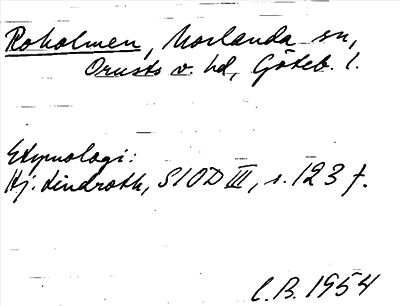 Roholmen, Morlanda sn,
Orusts v. hd, Göteb. l.
Etymologi:
Hj. Lindroth, SIOD III, s. 123 f.
C.B. 1954